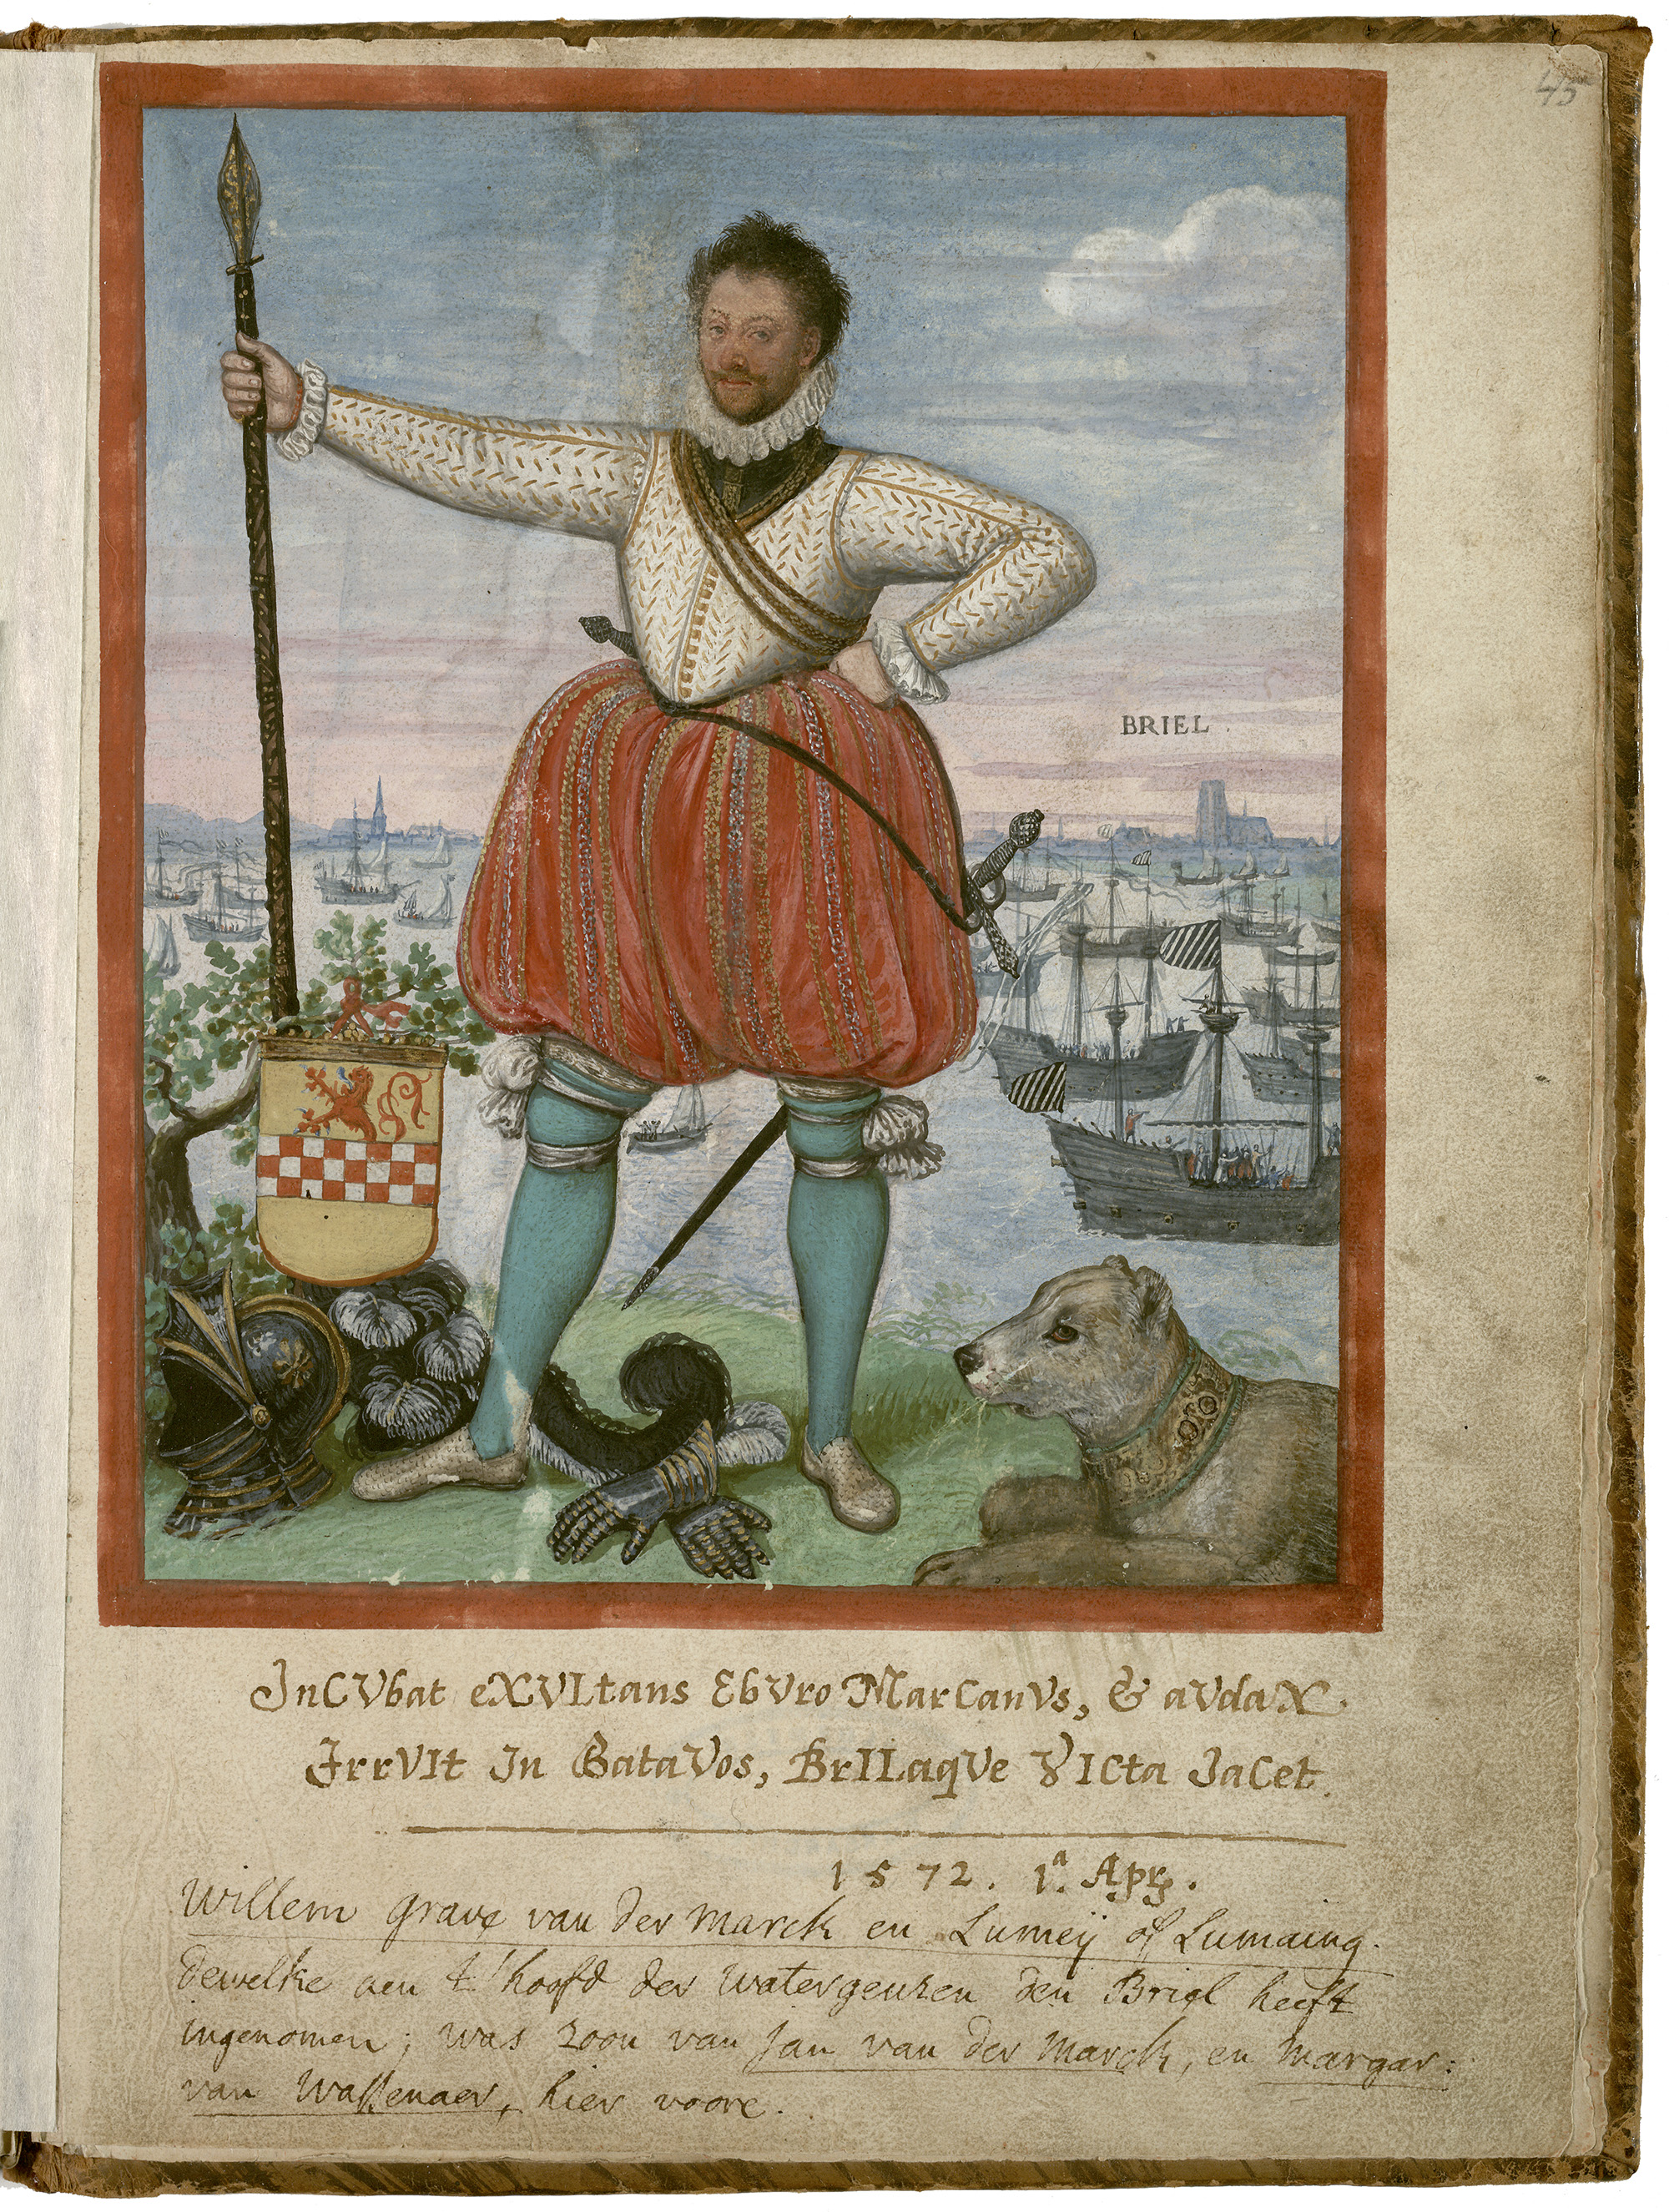 45
BRIEL.
InCVbat eXVLtans EbVro MarCanVs, & aVdaX.
IrrVIt In BataVos, BrILaqVe VICta JaCet.
1572. 1ª. Apr.
Willem grave van der Marck en Lumeÿ of Lumaing.
dewelke aen 't hoofd der Watergeuzen den Briel heeft
ingenomen; was zoon van Jan van der Marck, en Margar:
van Wassenaer, hier voore.